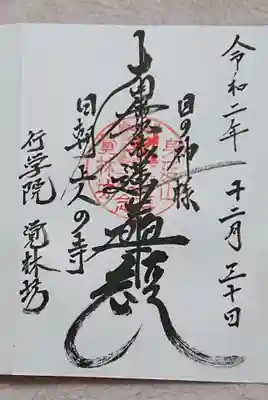 令和二年十二月三十日
目の神様
南無妙法蓮華経
日朝上人の寺
行学院 覚林坊